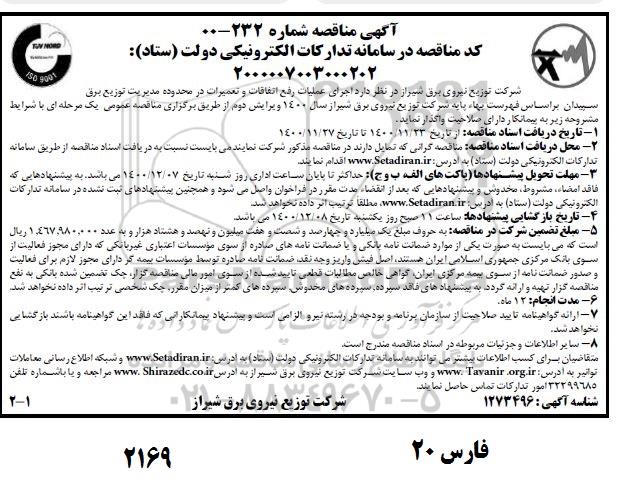 آگهی مناقصه شماره ۲۳۲-۰۰
کد مناقصه در سامانه تدارکات الکترونیکی دولت (ستاد):
۲۰۰۰۰۰۷۰۰۳۰۰۰۲۰۲
TUV NORD
ISO 9001
شرکت توزیع نیروی برق شیراز در نظر دارد اجرای عملیات رفع اتفاقات و تعمیرات در محدوده مدیریت توزیع برق
سپیدان براساس فهرست بهاء پایه شرکت توزیع نیروی برق شیراز سال ۱۴۰۰ ویرایش دوم از طریق برگزاری مناقصه عمومی یک مرحله ای با شرایط
مشروحه زیر به پیمانکار دارای صلاحیت واگذار نماید.
۱- تاریخ دریافت اسناد مناقصه: از تاریخ ۱۴۰۰/۱۱/۲۳ تا تاریخ ۱۴۰۰/۱۱/۲۷
۲- محل دریافت اسناد مناقصه: مناقصه گرانی که تمایل دارند در مناقصه مذکور شرکت نمایند می بایست نسبت به دریافت اسناد مناقصه از طریق سامانه
تدارکات الکترونیکی دولت (ستاد) به آدرس: www.Setadiran.ir اقدام نمایند.
۳- مهلت تحویل پیشنهادها (پاکت های الف، ب و ج): حداکثر تا پایان ساعت اداری روز شنبه تاریخ ۱۴۰۰/۱۲/۰۷ می باشد. به پیشنهادهایی که
فاقد امضاء، مشروط، مخدوش و پیشنهادهایی که بعد از انقضاء مدت مقرر در فراخوان واصل می شود و همچنین پیشنهادهای ثبت نشده در سامانه تدارکات
الکترونیکی دولت (ستاد) به آدرس: www.Setadiran.ir، مطلقا ترتیب اثر داده نخواهد شد.
۴- تاریخ بازگشایی پیشنهادها: ساعت ۱۱ صبح روز یکشنبه تاریخ ۱۴۰۰/۱۲/۰۸ می باشد.
۵- مبلغ تضمین شرکت در مناقصه: به حروف مبلغ یک میلیارد و چهارصد و شصت و هفت میلیون و نهصد و هشتاد هزار و به عدد ۱,۴۶۷,۹۸۰,۰۰۰ ریال
است که می بایست به صورت یکی از موارد ضمانت نامه بانکی و یا ضمانت نامه های صادره از سوی مؤسسات اعتباری غیربانکی که دارای مجوز فعالیت از
سوی بانک مرکزی جمهوری اسلامی ایران هستند، اصل فیش واریز وجه نقد، ضمانت نامه صادره توسط مؤسسات بیمه گر دارای مجوز لازم برای فعالیت
و صدور ضمانت نامه از سوی بیمه مرکزی ایران، گواهی خالص مطالبات قطعی تایید شده از سوی امور مالی مناقصه گزار، چک تضمین شده بانکی به نفع
مناقصه گزار تهیه و ارائه گردد. به پیشنهاد های فاقد سپرده، سپرده های مخدوش، سپرده های کمتر از میزان مقرر، چک شخصی ترتیب اثر داده نخواهد شد.
۶- مدت انجام: ۱۲ ماه.
۷- ارائه گواهینامه تایید صلاحیت از سازمان برنامه و بودجه در رشته نیرو الزامی است و پیشنهاد پیمانکارانی که فاقد این گواهینامه باشند بازگشایی
نخواهد شد.
۸- سایر اطلاعات و جزئیات مربوطه در اسناد مناقصه مندرج است.
متقاضیان برای کسب اطلاعات بیشتر می توانند به سامانه تدارکات الکترونیکی دولت (ستاد) به آدرس: www.Setadiran.ir و شبکه اطلاع رسانی معاملات
توانیر به آدرس: www. Tavanir .org.ir و وب سایت شرکت توزیع نیروی برق شیراز به آدرس www. Shirazedc.co.ir مراجعه و یا با شماره تلفن
۳۲۲۹۹۶۸۵ امور تدارکات تماس حاصل نمایند.
شناسه آگهی: ۱۲۷۳۴۹۶
شرکت توزیع نیروی برق شیراز
۲-۱
۰۲۱-۸۸۳۴۹۶۷۰-۵
فارس ۲۰
۲۱۶۹